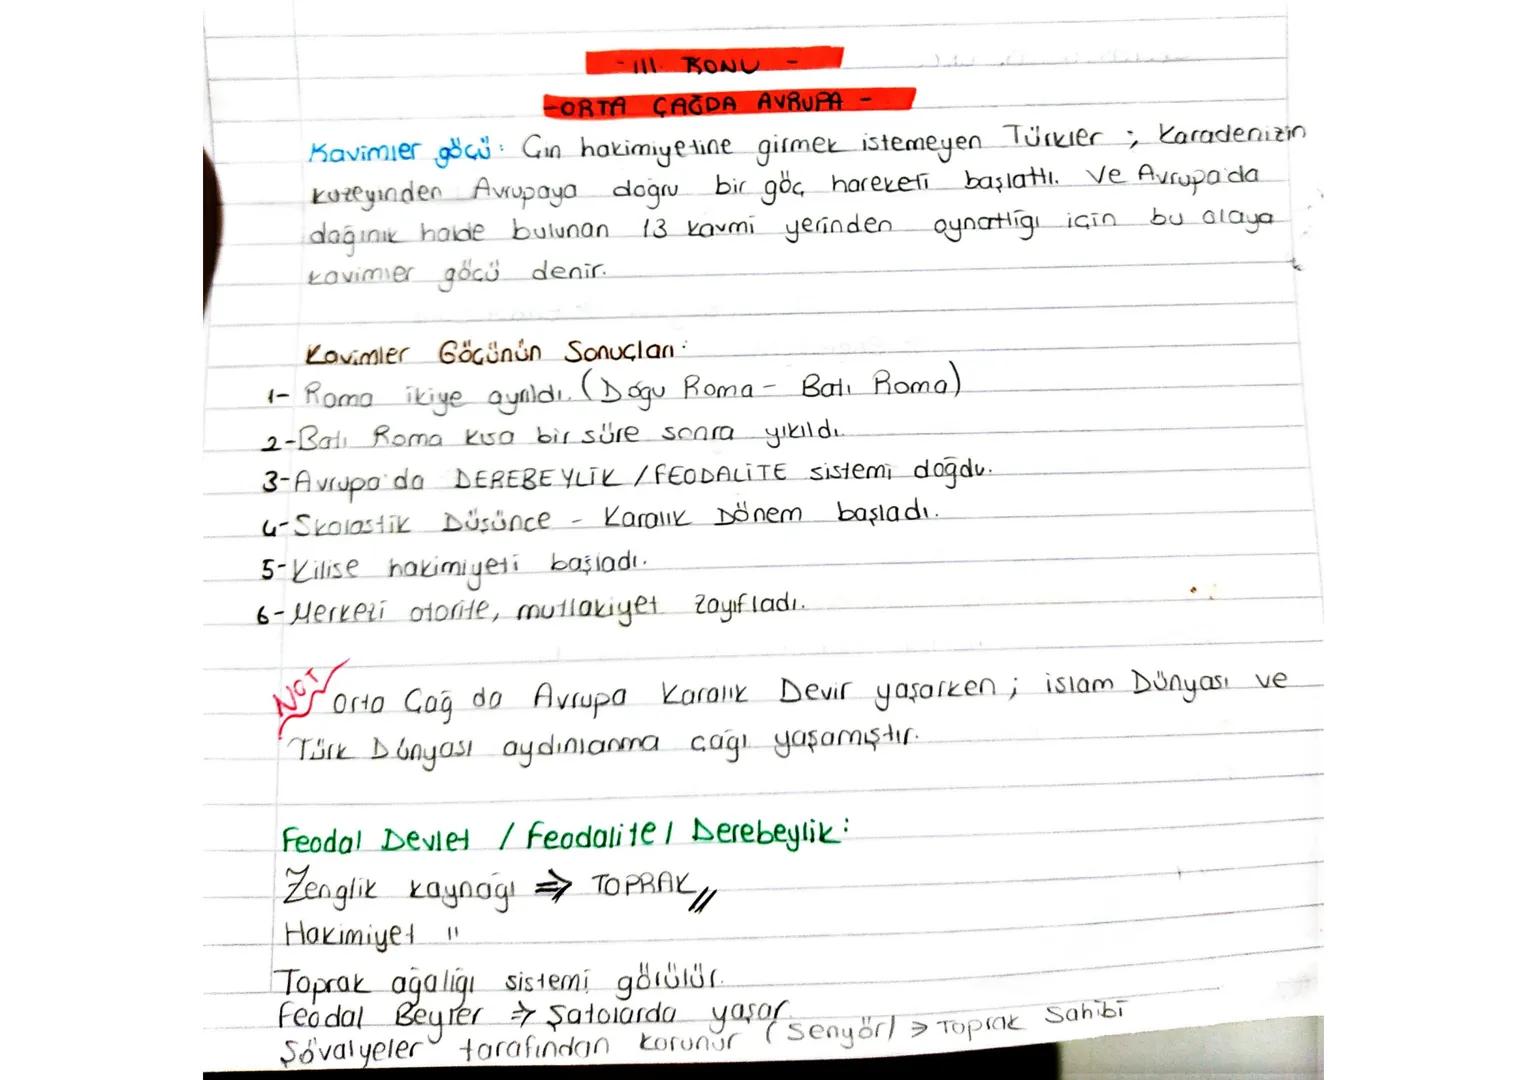 - III. KONU -
- ORTA ÇAĞDA AVRUPA -
Kavimler göçü: Çin hakimiyetine girmek istemeyen Türkler ; Karadenizin
kuzeyinden Avrupaya doğru bir göç hareketi başlattı. Ve Avrupa'da
dağınık halde bulunan 13 kavmi yerinden oynattığı için bu olaya
kavimler göçü denir.
Kavimler Göçünün Sonuçları:
1- Roma ikiye ayrıldı. (Doğu Roma - Batı Roma)
2-Batı Roma kısa bir süre sonra yıkıldı.
3-Avrupa'da DEREBEYLİK / FEODALİTE sistemi doğdu.
4-Skolastik Düşünce - Karalık Dönem başladı.
5-Kilise hakimiyeti başladı.
6-Merkezi otorite, mutlakiyet zayıfladı.
NOT Orta Çağ da Avrupa Karalık Devir yaşarken ; islam Dünyası ve
Türk Dünyası aydınlanma çağı yaşamıştır.
Feodal Devlet / Feodalite / Derebeylik:
Zenglik kaynağı ⇒ TOPRAK //
Hakimiyet "
Toprak ağalığı sistemi görülür.
Feodal Beyler ⇒ Şatolarda yaşar.
Şövalyeler tarafından korunur (Senyör) → Toprak Sahibi